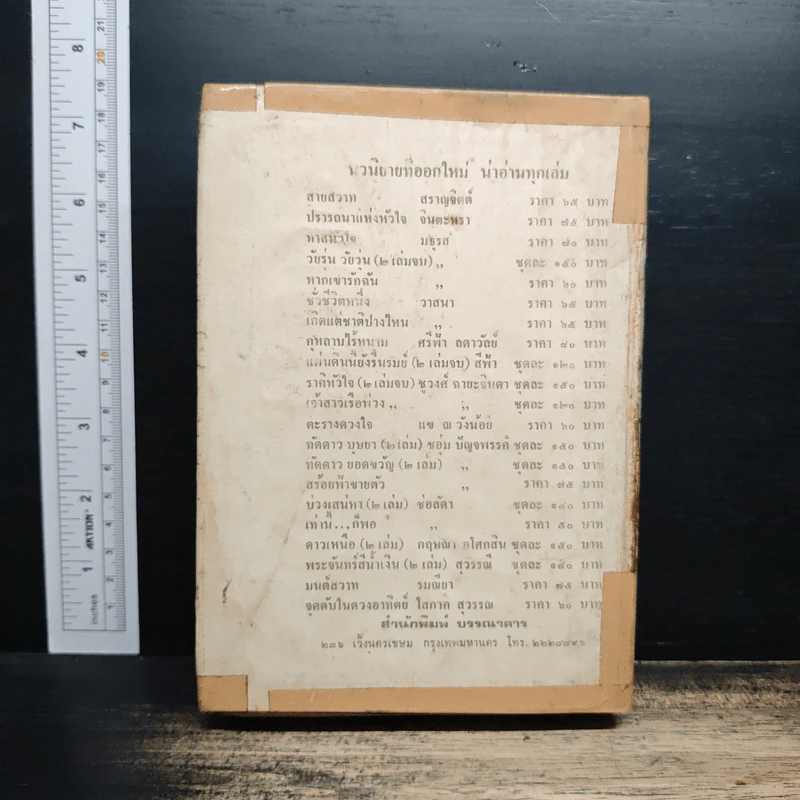 นวนิยายที่ออกใหม่ น่าอ่านทุกเล่ม
สายสวาท สราญจิตต์ ราคา ๖๕ บาท
ปรารถนาแห่งหัวใจ จินตะหรา ราคา ๗๕ บาท
ทาสหัวใจ มธุรส ราคา ๗๐ บาท
วัยรุ่น วัยวุ่น (๒ เล่มจบ) ,, ชุดละ ๑๕๐ บาท
หากเขารักฉัน ,, ราคา ๖๐ บาท
ชั่วชีวิตหนึ่ง วาสนา ราคา ๖๕ บาท
เกิดแต่ชาติปางไหน ,, ราคา ๖๕ บาท
กุหลาบไร้หนาม ศรีฟ้า ลดาวัลย์ ราคา ๘๐ บาท
แผ่นดินนี้ยังรื่นรมย์ (๒ เล่มจบ) สีฟ้า ชุดละ ๑๒๐ บาท
ราคีหัวใจ (๒ เล่มจบ) ชูวงศ์ ฉายะจินดา ชุดละ ๑๕๐ บาท
เจ้าสาวเรือพ่วง ,, ,, ชุดละ ๑๒๐ บาท
ตะรางดวงใจ แข ณ วังน้อย ราคา ๖๐ บาท
ทัดดาว บุษยา (๒ เล่ม) ชอุ่ม ปัญจพรรค์ ชุดละ ๑๕๐ บาท
ทัดดาว ยอดขวัญ (๒ เล่ม) ,, ชุดละ ๑๕๐ บาท
สร้อยฟ้าขายตัว ,, ราคา ๗๕ บาท
บ่วงเสน่หา (๒ เล่ม) ช่อลัดา ชุดละ ๑๔๐ บาท
เท่านี้...ก็พอ ,, ราคา ๕๐ บาท
ดาวเหนือ (๒ เล่ม) กฤษณา อโศกสิน ชุดละ ๑๕๐ บาท
พระจันทร์สีน้ำเงิน (๒ เล่ม) สุวรรณี ชุดละ ๑๔๐ บาท
มนต์สวาท รมณียา ราคา ๗๕ บาท
จุดดับในดวงอาทิตย์ โสภาค สุวรรณ ราคา ๖๐ บาท
สำนักพิมพ์ บรรณาคาร
๒๓๖ เวิ้งนครเขษม กรุงเทพมหานคร โทร. ๒๒๒๐๗๙๖
8
7
6
5
4
3
2
1
inches
AKTION
21
20
19
18
17
16
15
14
13
12
11
10
9
8
7
6
5
4
3
2
1